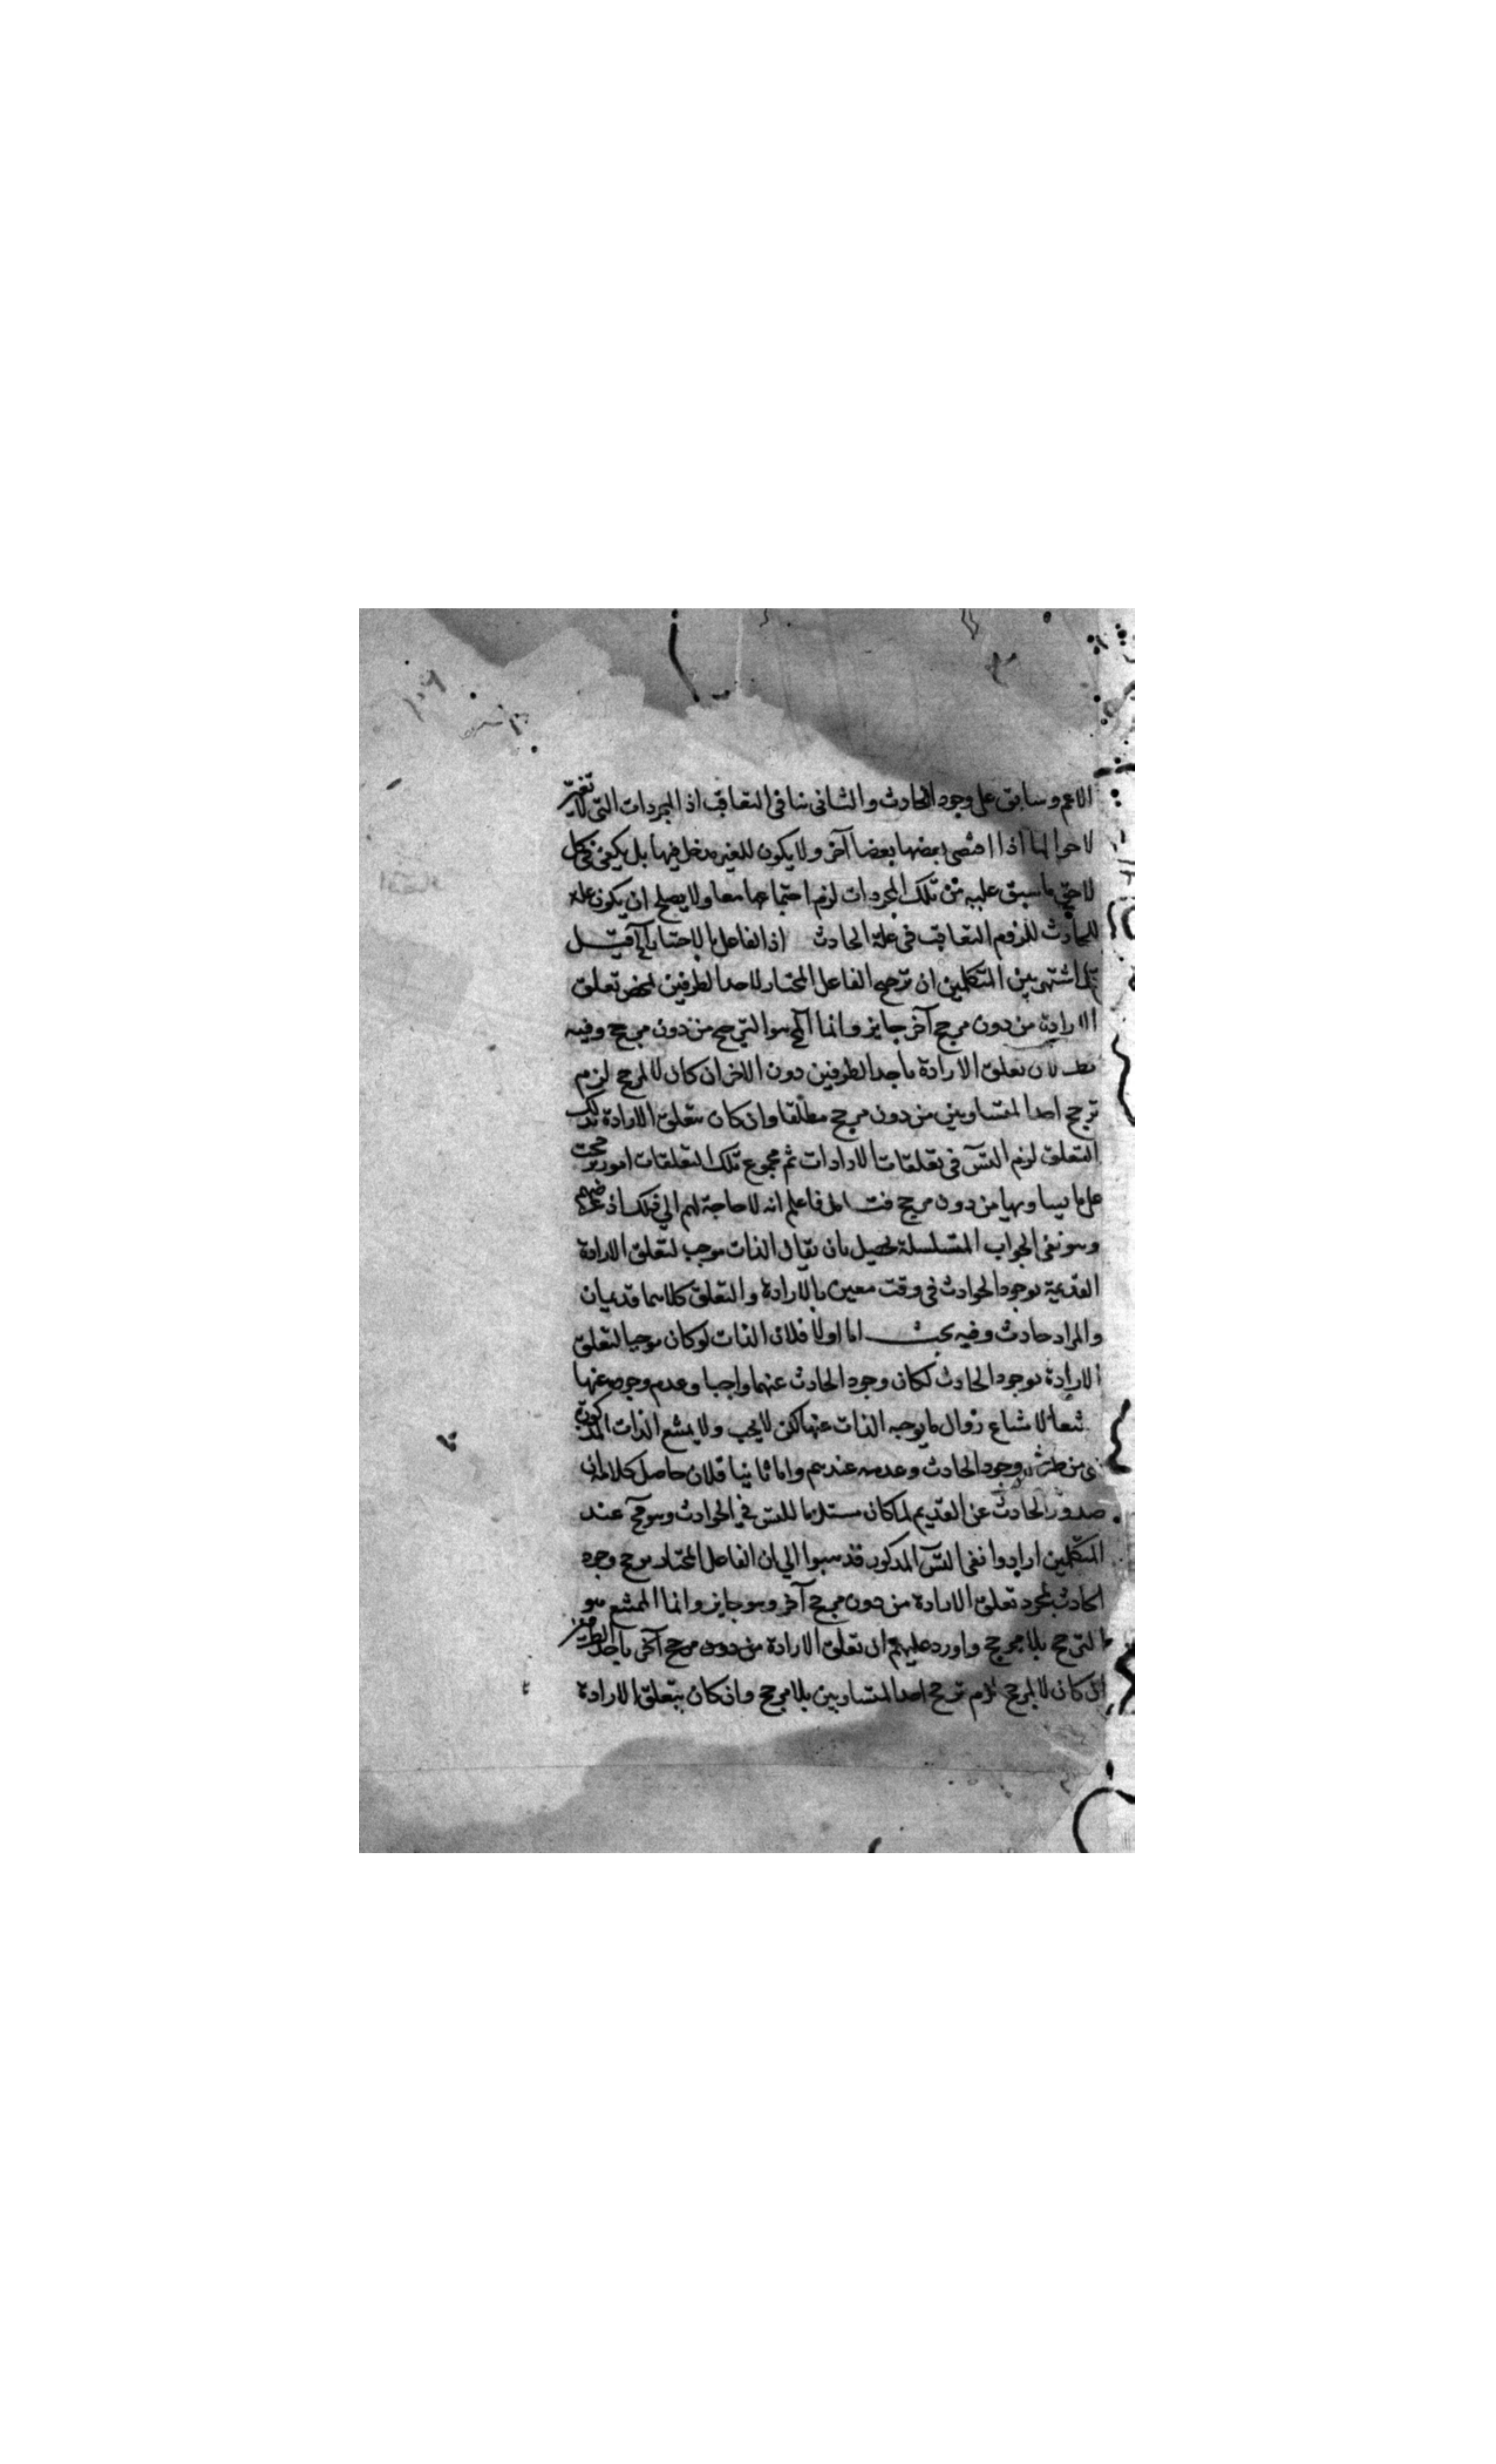 الاعم وسابق على وجود الحادث والثانى ينافى التعاقب اذ المجردات التى لا تغير
لاحوالها اذا اقتضى بعضها بعضا آخر ولا يكون للغير مدخل فيها بل يكفى فى كل
لاحق ما سبق عليه من تلك المجردات لزم اجتماعها معا ولا يصلح ان يكون علة
للحادث للزوم التعاقب فى علة الحادث اذ الفاعل بالاختيار الخ قيل
اشتهر بين المتكلمين ان ترجيح الفاعل المختار لاحد الطرفين لمحض تعلق
الارادة من دون مرجح آخر جايز وانما المح هو الترجح من دون مرجح وفيه
نظر لان تعلق الارادة باحد الطرفين دون الاخر ان كان لا لمرجح لزم
ترجح احد المتساويين من دون مرجح مطلقا وان كان بتعلق الارادة بذلك
التعلق لزم التس فى تعلقات الارادات ثم مجموع تلك التعلقات امور ترجحت
على ما يساويها من دون مرجح فاعلم انه لا حاجة لهم الى ذلك اذ غرضهم
وهو نفى الحوادث المتسلسلة يحصل بان يقال الذات موجب لتعلق الارادة
القديمة بوجود الحوادث فى وقت معين بالارادة والتعلق كلاهما قديمان
والمراد حادث وفيه بحث اما اولا فلان الذات لو كان موجبا لتعلق
الارادة بوجود الحادث لكان وجود الحادث عنها واجبا وعدم وجوده عنها
ممتنعا لامتناع زوال ما يوجبه الذات عنها لكن لا يجب ولا يمتنع الذات المذكورة
من طرفى وجود الحادث وعدمه عندهم واما ثانيا فلان حاصل كلامه ان
صدور الحادث عن القديم لما كان مستلزما للتس فى الحوادث وهو مح عند
المتكلمين ارادوا نفى التس المذكور فذهبوا الى ان الفاعل المختار يرجح وجود
الحادث بمجرد تعلق الارادة من دون مرجح آخر وهو جايز وانما الممتنع هو
الترجح بلا مرجح واورد عليهم ان تعلق الارادة من دون مرجح آخر باحد الطرفين
ان كان لا لمرجح لزم ترجح احد المتساويين بلا مرجح وان كان بتعلق الارادة